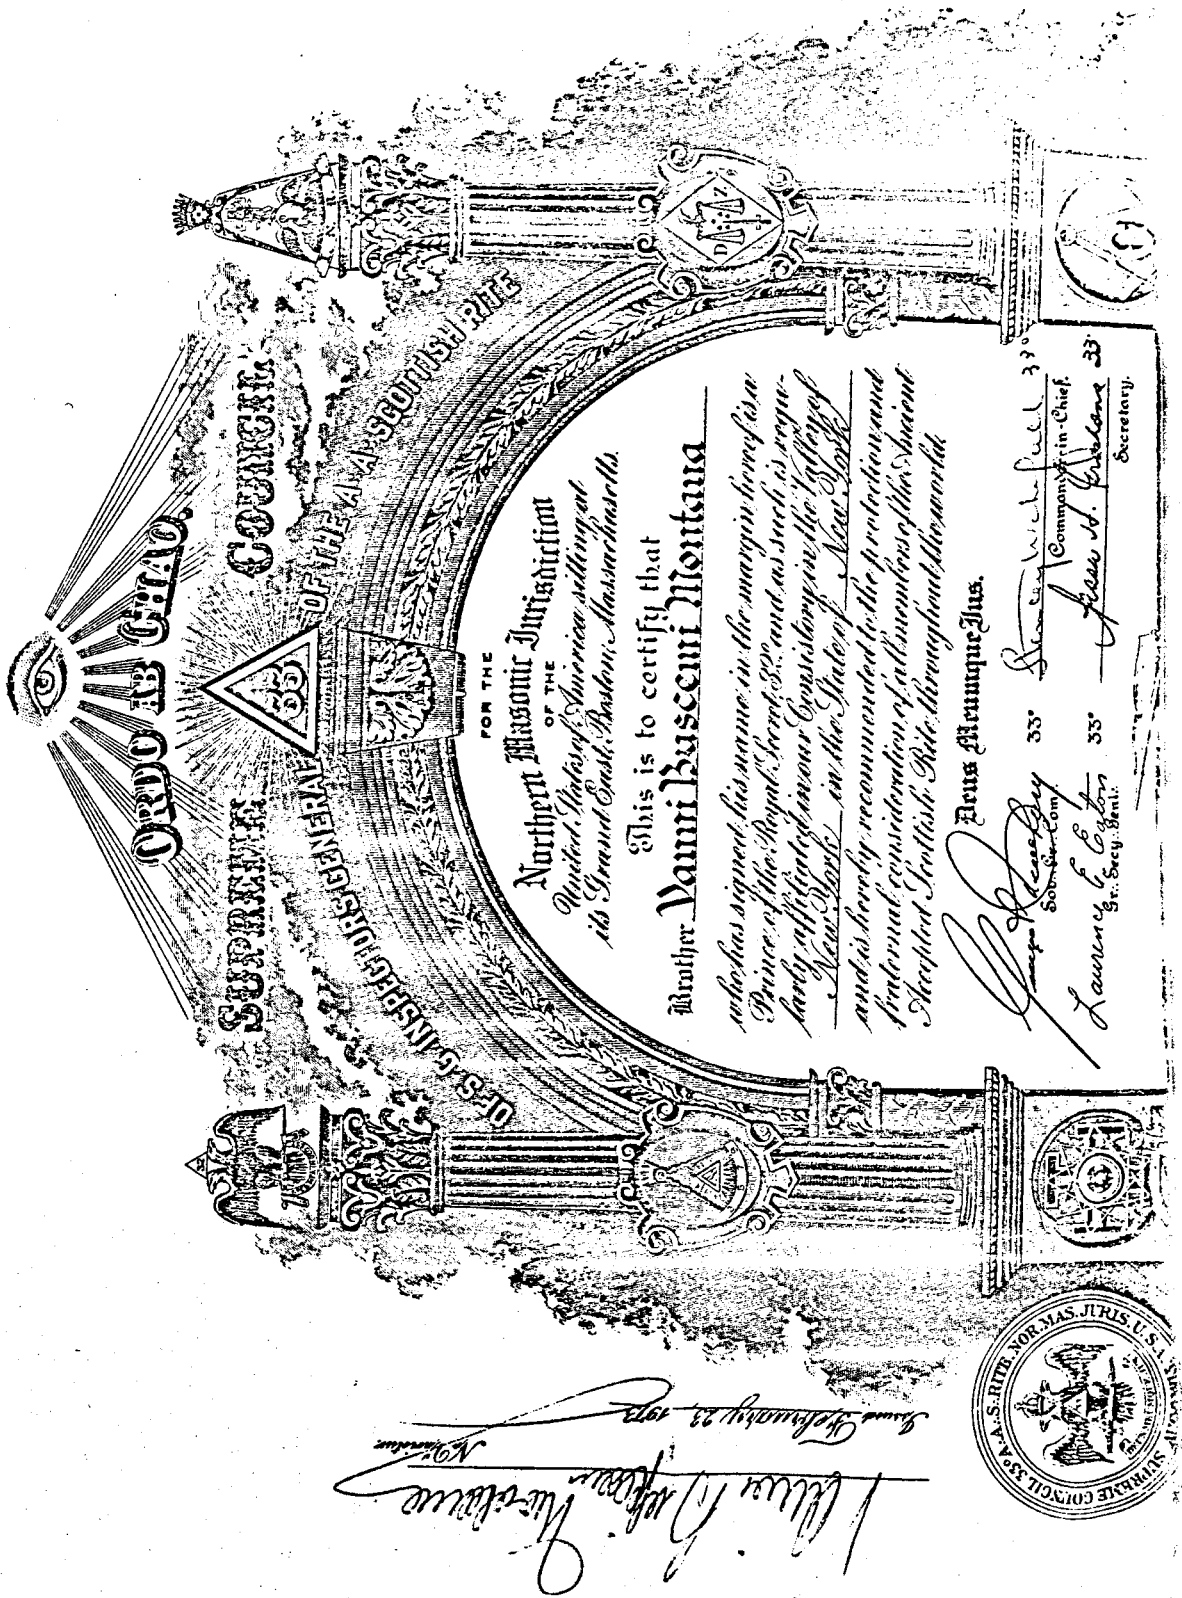 ORDO AB CHAO.
SUPREME COUNCIL
OF S. G. INSPECTORS GENERAL OF THE A. A. SCOTTISH RITE
33
FOR THE
Northern Masonic Jurisdiction
OF THE
United States of America sitting at
its Grand East, Boston, Massachusetts.
This is to certify that
Brother Vanni Buscemi Montana
who has signed his name in the margin hereof is a
Prince of the Royal Secret 32° and as such is regu-
larly affiliated in our Consistory in the Valley of
New York in the State of New York
and is hereby recommended to the protection and
fraternal consideration of all members of the Ancient
Accepted Scottish Rite throughout the world.
Deus Meumque Jus.
33°
Sov. Gr. Com.
33°
Commander-in-Chief.
Laurence E Eaton 33°
Gr. Secy. Genl.
33°
Secretary.
D Z
SUPREME COUNCIL 33° A. A. S. RITE. NOR. MAS. JURIS. U. S. A.
Ne Varietur
Issued February 23, 1973